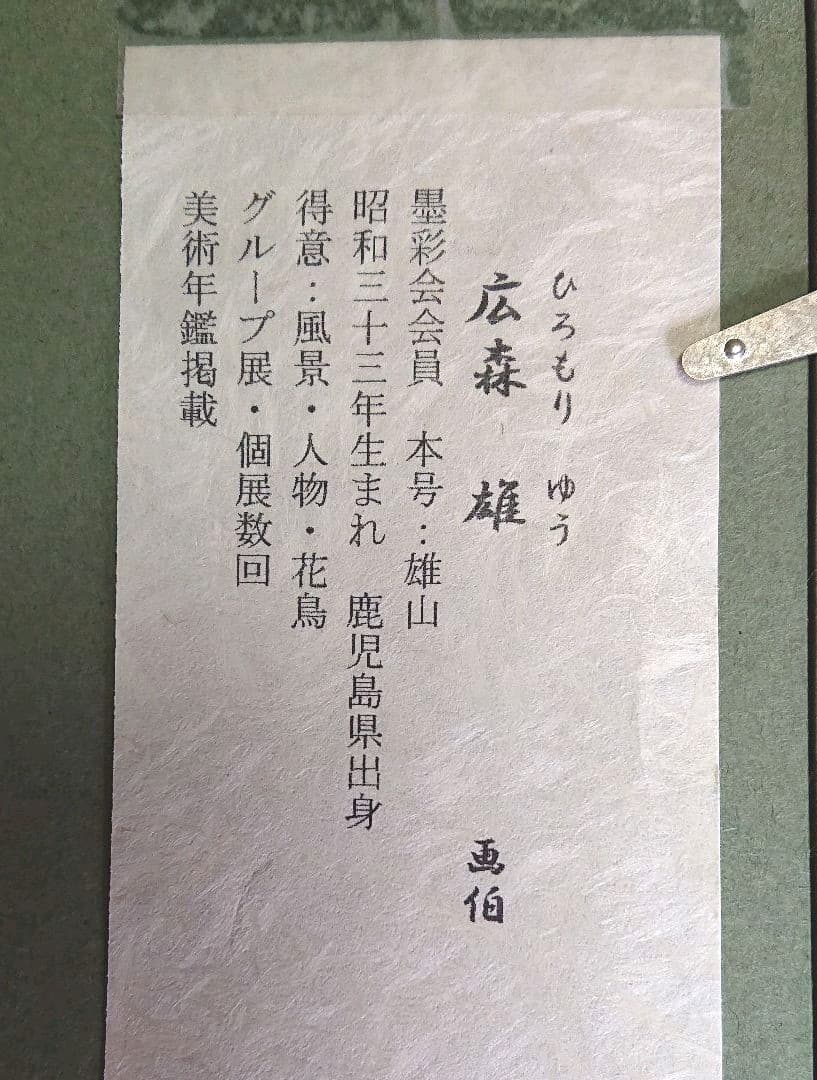 ひろもり ゆう
広森 雄 画伯
墨彩会会員 本号：雄山
昭和三十三年生まれ 鹿児島県出身
得意：風景・人物・花鳥
グループ展・個展数回
美術年鑑掲載